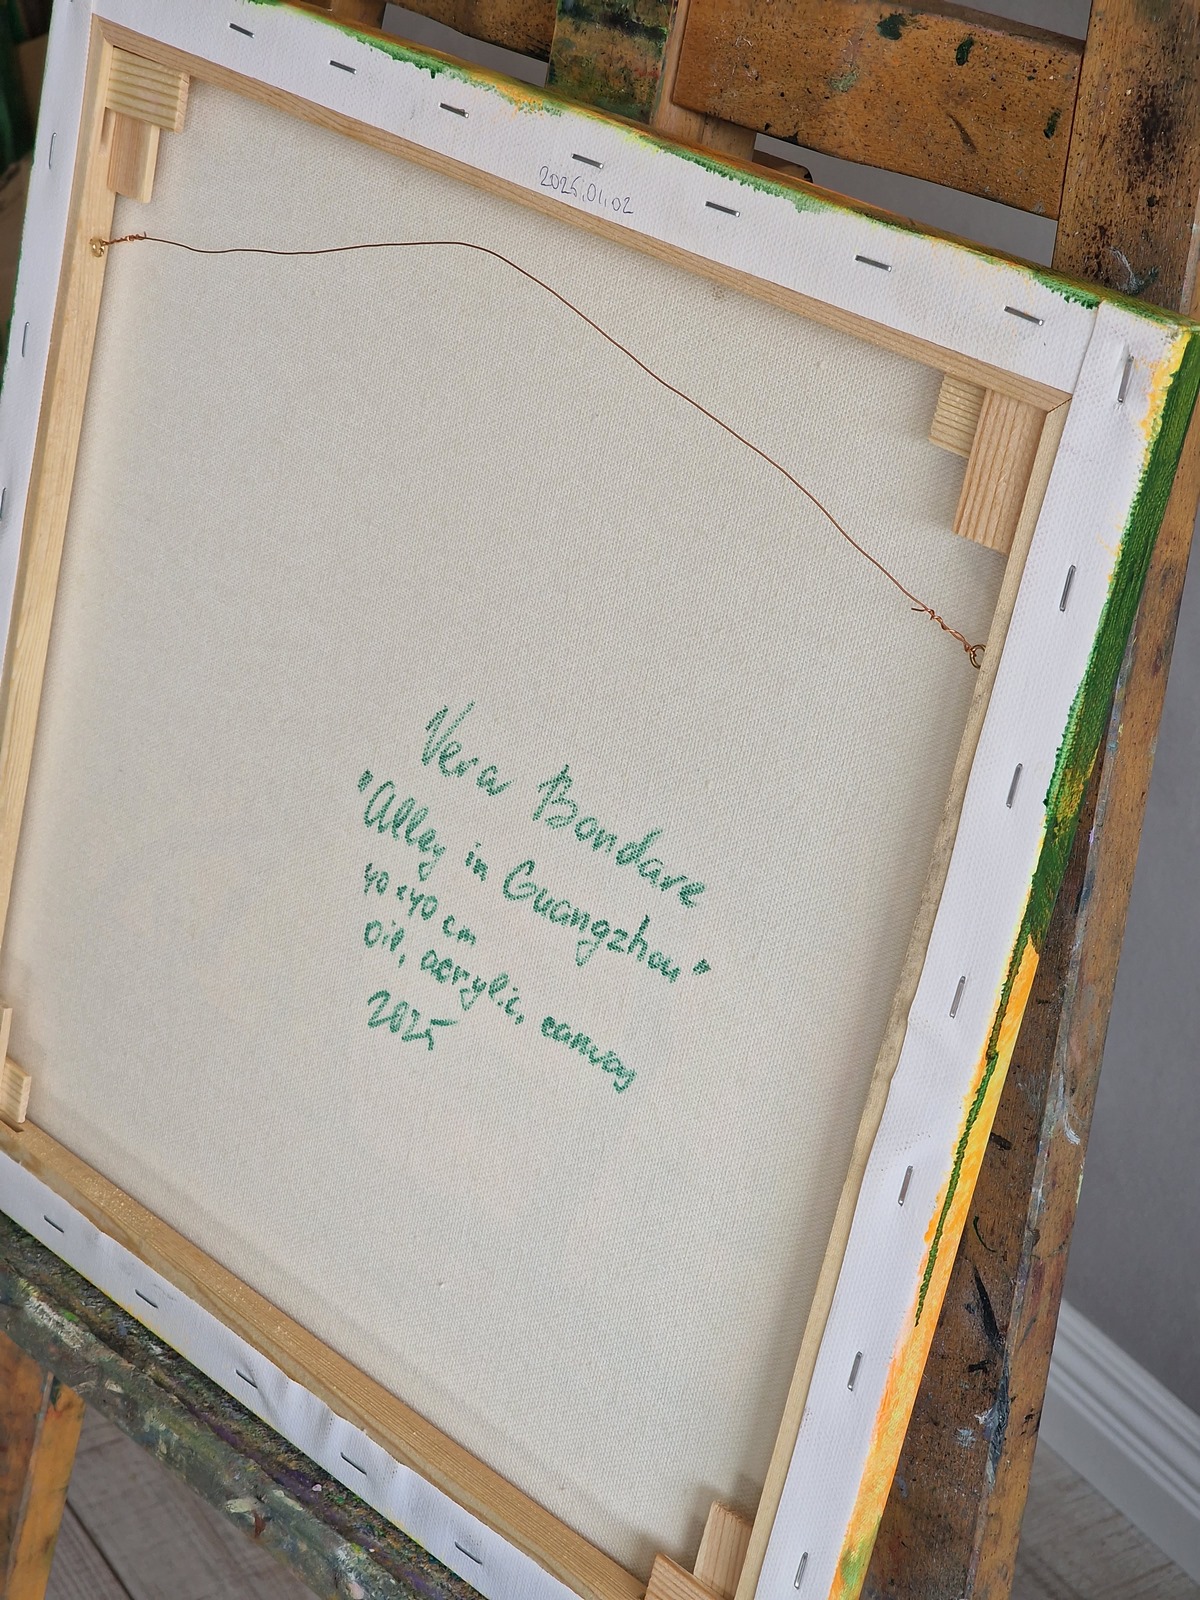 2025.01.02
Vera Bondare
"Alley in Guangzhou"
40x40 cm
Oil, acrylic, canvas
2025